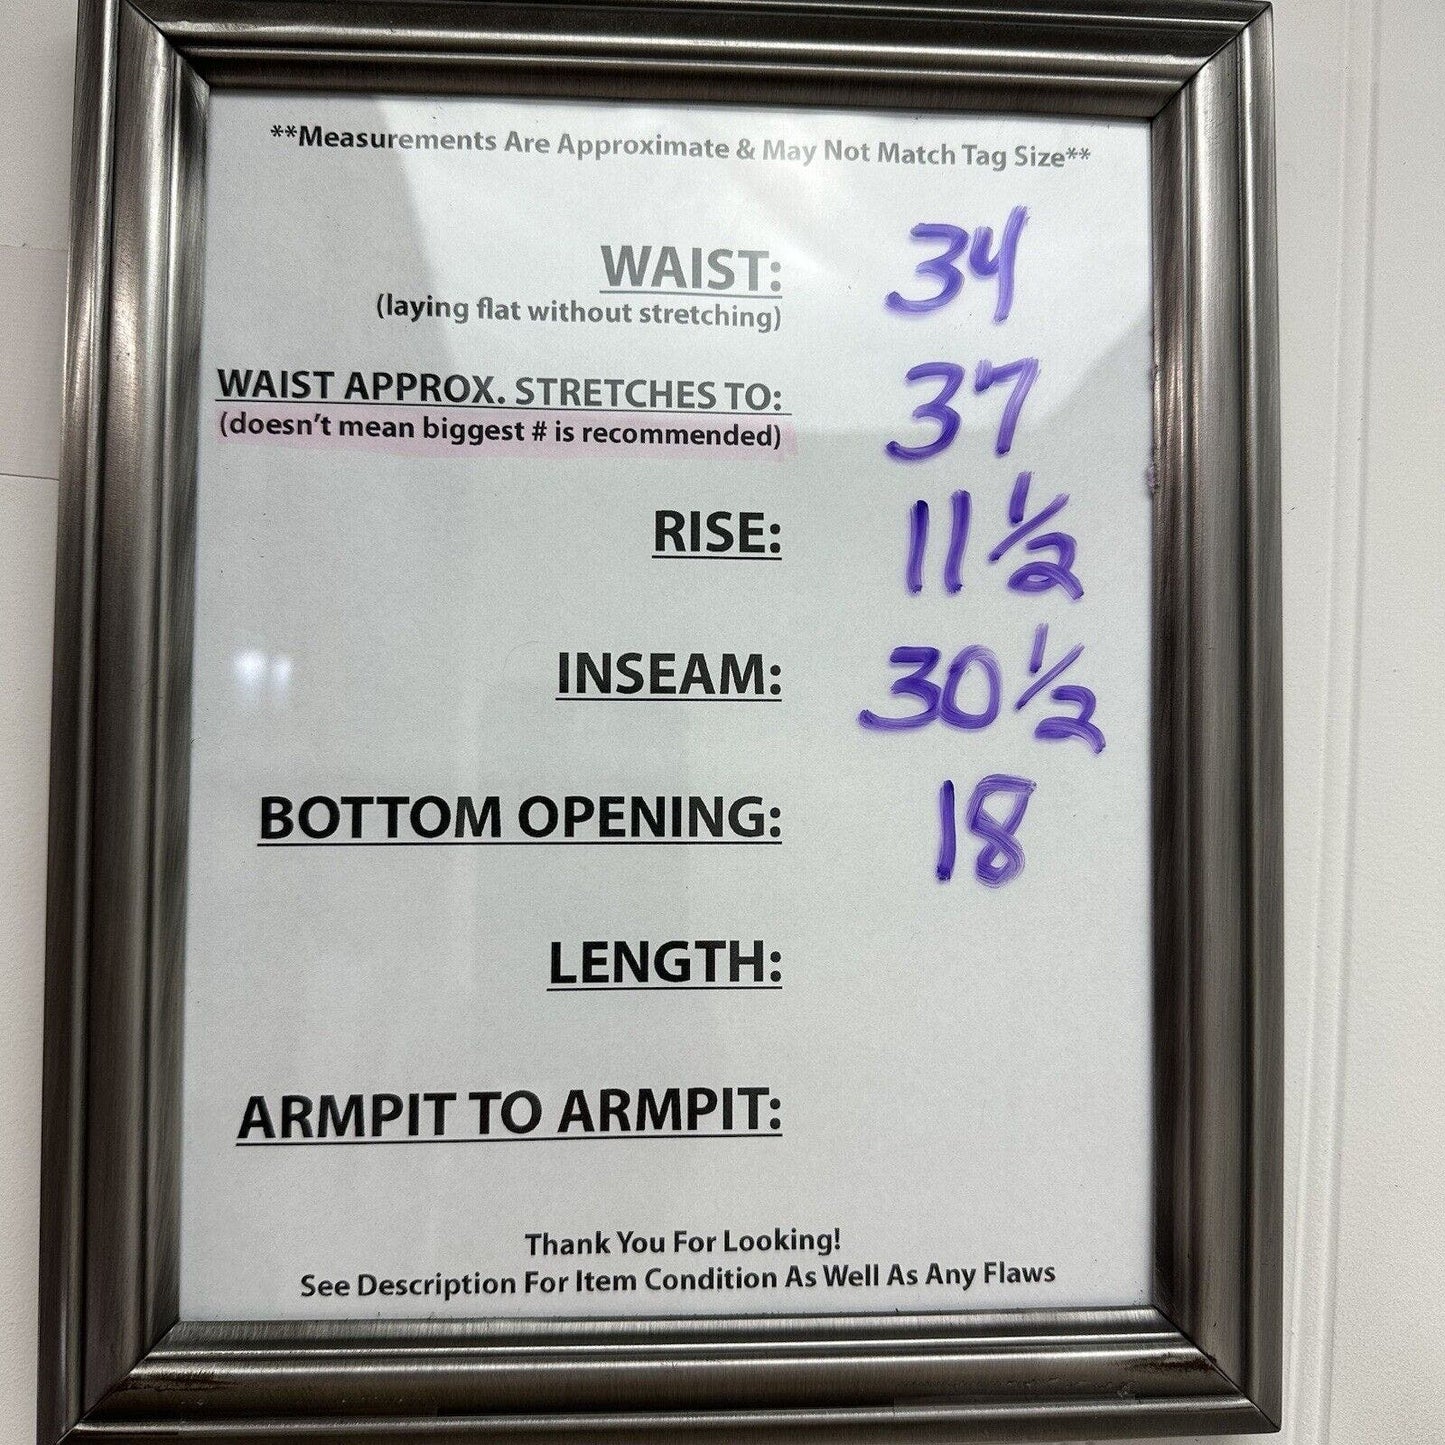 **Measurements Are Approximate & May Not Match Tag Size**
WAIST: 34
(laying flat without stretching)
WAIST APPROX. STRETCHES TO: 37
(doesn't mean biggest # is recommended)
RISE: 11 1/2
INSEAM: 30 1/2
BOTTOM OPENING: 18
LENGTH:
ARMPIT TO ARMPIT:
Thank You For Looking!
See Description For Item Condition As Well As Any Flaws